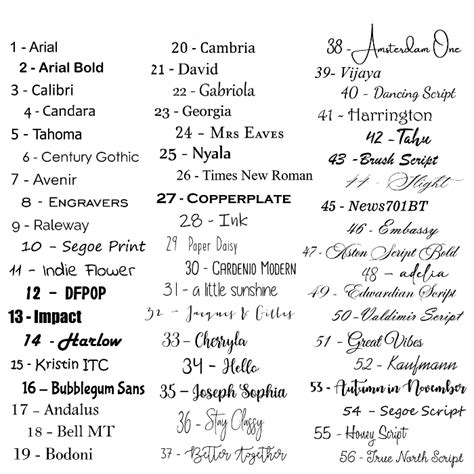 1 - Arial
2 - Arial Bold
3 - Calibri
4 - Candara
5 - Tahoma
6 - Century Gothic
7 - Avenir
8 - Engravers
9 - Raleway
10 - Segoe Print
11 - Indie Flower
12 - DFPOP
13 - Impact
14 - Harlow
15 - Kristin ITC
16 - Bubblegum Sans
17 - Andalus
18 - Bell MT
19 - Bodoni
20 - Cambria
21 - David
22 - Gabriola
23 - Georgia
24 - Mrs Eaves
25 - Nyala
26 - Times New Roman
27 - Copperplate
28 - Ink
29 Paper Daisy
30 - Cardenio Modern
31 - a little sunshine
32 - Jacques & Gilles
33 - Cherryla
34 - Hello
35 - Joseph Sophia
36 - Stay Classy
37 - Better Together
38 - Amsterdam One
39- Vijaya
40 - Dancing Script
41 - Harrington
42 - Tahu
43 - Brush Script
44 - Flight
45 - News701BT
46 - Embassy
47 - Aston Script Bold
48 - adelia
49 - Edwardian Script
50 - Valdimir Script
51 - Great Vibes
52 - Kaufmann
53 - Autumn in November
54 - Segoe Script
55 - Honey Script
56 - True North Script